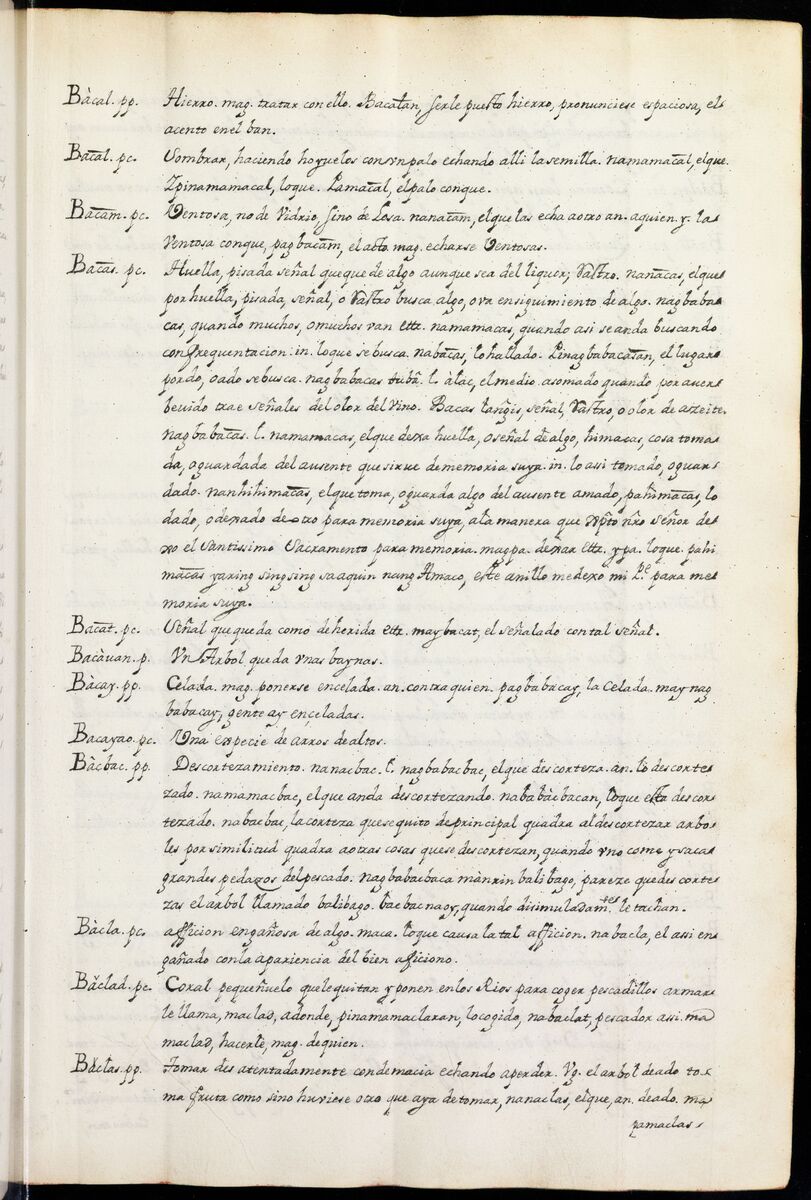 Bàcal. pp. Hierro. mag. tratar con ello. Bacalan, serle puesto hierro, pronunciese espaciosa, el
acento en el ban.
Bacal. pc. Sombrar, haciendo hoyuelos con vn palo echando alli la semilla. namamacal, el que.
Ypinamamacal, loque. Pamacal, el palo conque.
Bacam. pc. Ventosa, no de Vidrio, sino de Losa. nanacam, el que las echa aotro an. aquien. y. la
Ventosa conque, pagbacam, el acto. mag. echarse Ventosas.
Bacas. pc. Huella, pisada señal queque de algo aunque sea del liquor; Rastro. nanacas, el que
por huella, pisada, señal, o Rastro busca algo, o va ensiguimiento de algo. nagbaba
cas, quando muchos, omuchos van ettz. namamacas, quando asi se anda buscando
con frequentacion. in. loque se busca. nabacas, lo hallado. Pinagbabacasan, el lugar
pordo, o ado se busca. nagbabacas tubã. l. àlac, el medio asomado quando por aver
bevido trae señales del olor del Vino. Bacas langis, señal, Rastro, o olor de azeite.
nagbabacas. l. namamacas, el que dexa huella, o señal de algo, himacas, cosa toma
da, o guardada del ausente que sirue de memoria suya. in. lo asi tomado, o guar
dado. nanhihimacas, el que toma, o guarda algo del ausente amado, pahimacas, lo
dado, o dexado de otro para memoria suya, ala manera que xpto nro señor de
xo el Santissimo Sacramento para memoria. magpa. dexar ettz. y pa. loque. pahi
macas yaring singsing sa aquin nang Amaco, este anillo me dexo mi Pe. para me
moria suya.
Bacat. pc. Señal que queda como de herida ettz. maybacat, el señalado con tal señal.
Bacàuan. p. Vn Arbol que da vnas baynas.
Bàcay. pp. Celada. mag. ponerse encelada. an. contra quien. pagbabacay, la Celada. may nag
babacay, gente ay enceladas.
Bacayao. pc. Una especie de arros de altos.
Bàcbac. pp. Descortezamiento. nanacbac. l. nagbabacbac, el que descorteza. an. lo descorte
zado. namamacbac, el que anda descortezando. nababàcbacan, loque esta descor
tezado. nabacbac, la corteza que se quito de principal quadra al descortezar arbo
les por similitud quadra aotras cosas que se descortezan, quando vno come y saca
grandes pedazos del pescado. nagbabacbaca mànrin balibago, pareze que descorte
zas el arbol llamado balibago. bacbac nagy, quando disimuladamte. le tachan.
Bàcla. pc. afficion engañosa de algo. maca. loque causa la tal afficion. nabacla, el asi en
gañado con la apariencia del bien aficiono.
Bàclad. pc. Coral pequeñuelo que le quitan y ponen en los Rios para coger pescadillos armar
le llama, maclad, adonde, pinamamaclaran, lo cogido, nabaclat, pescador asi. ma
maclad, hacerle, mag. de quien.
Bàclas. pp. Tomar des atentadamente con demacia echando aperder. Vg. el arbol deado to
ma fruta como sino huviese otro que aya de tomar, nanaclas, el que, an. deado. ma
pamaclas